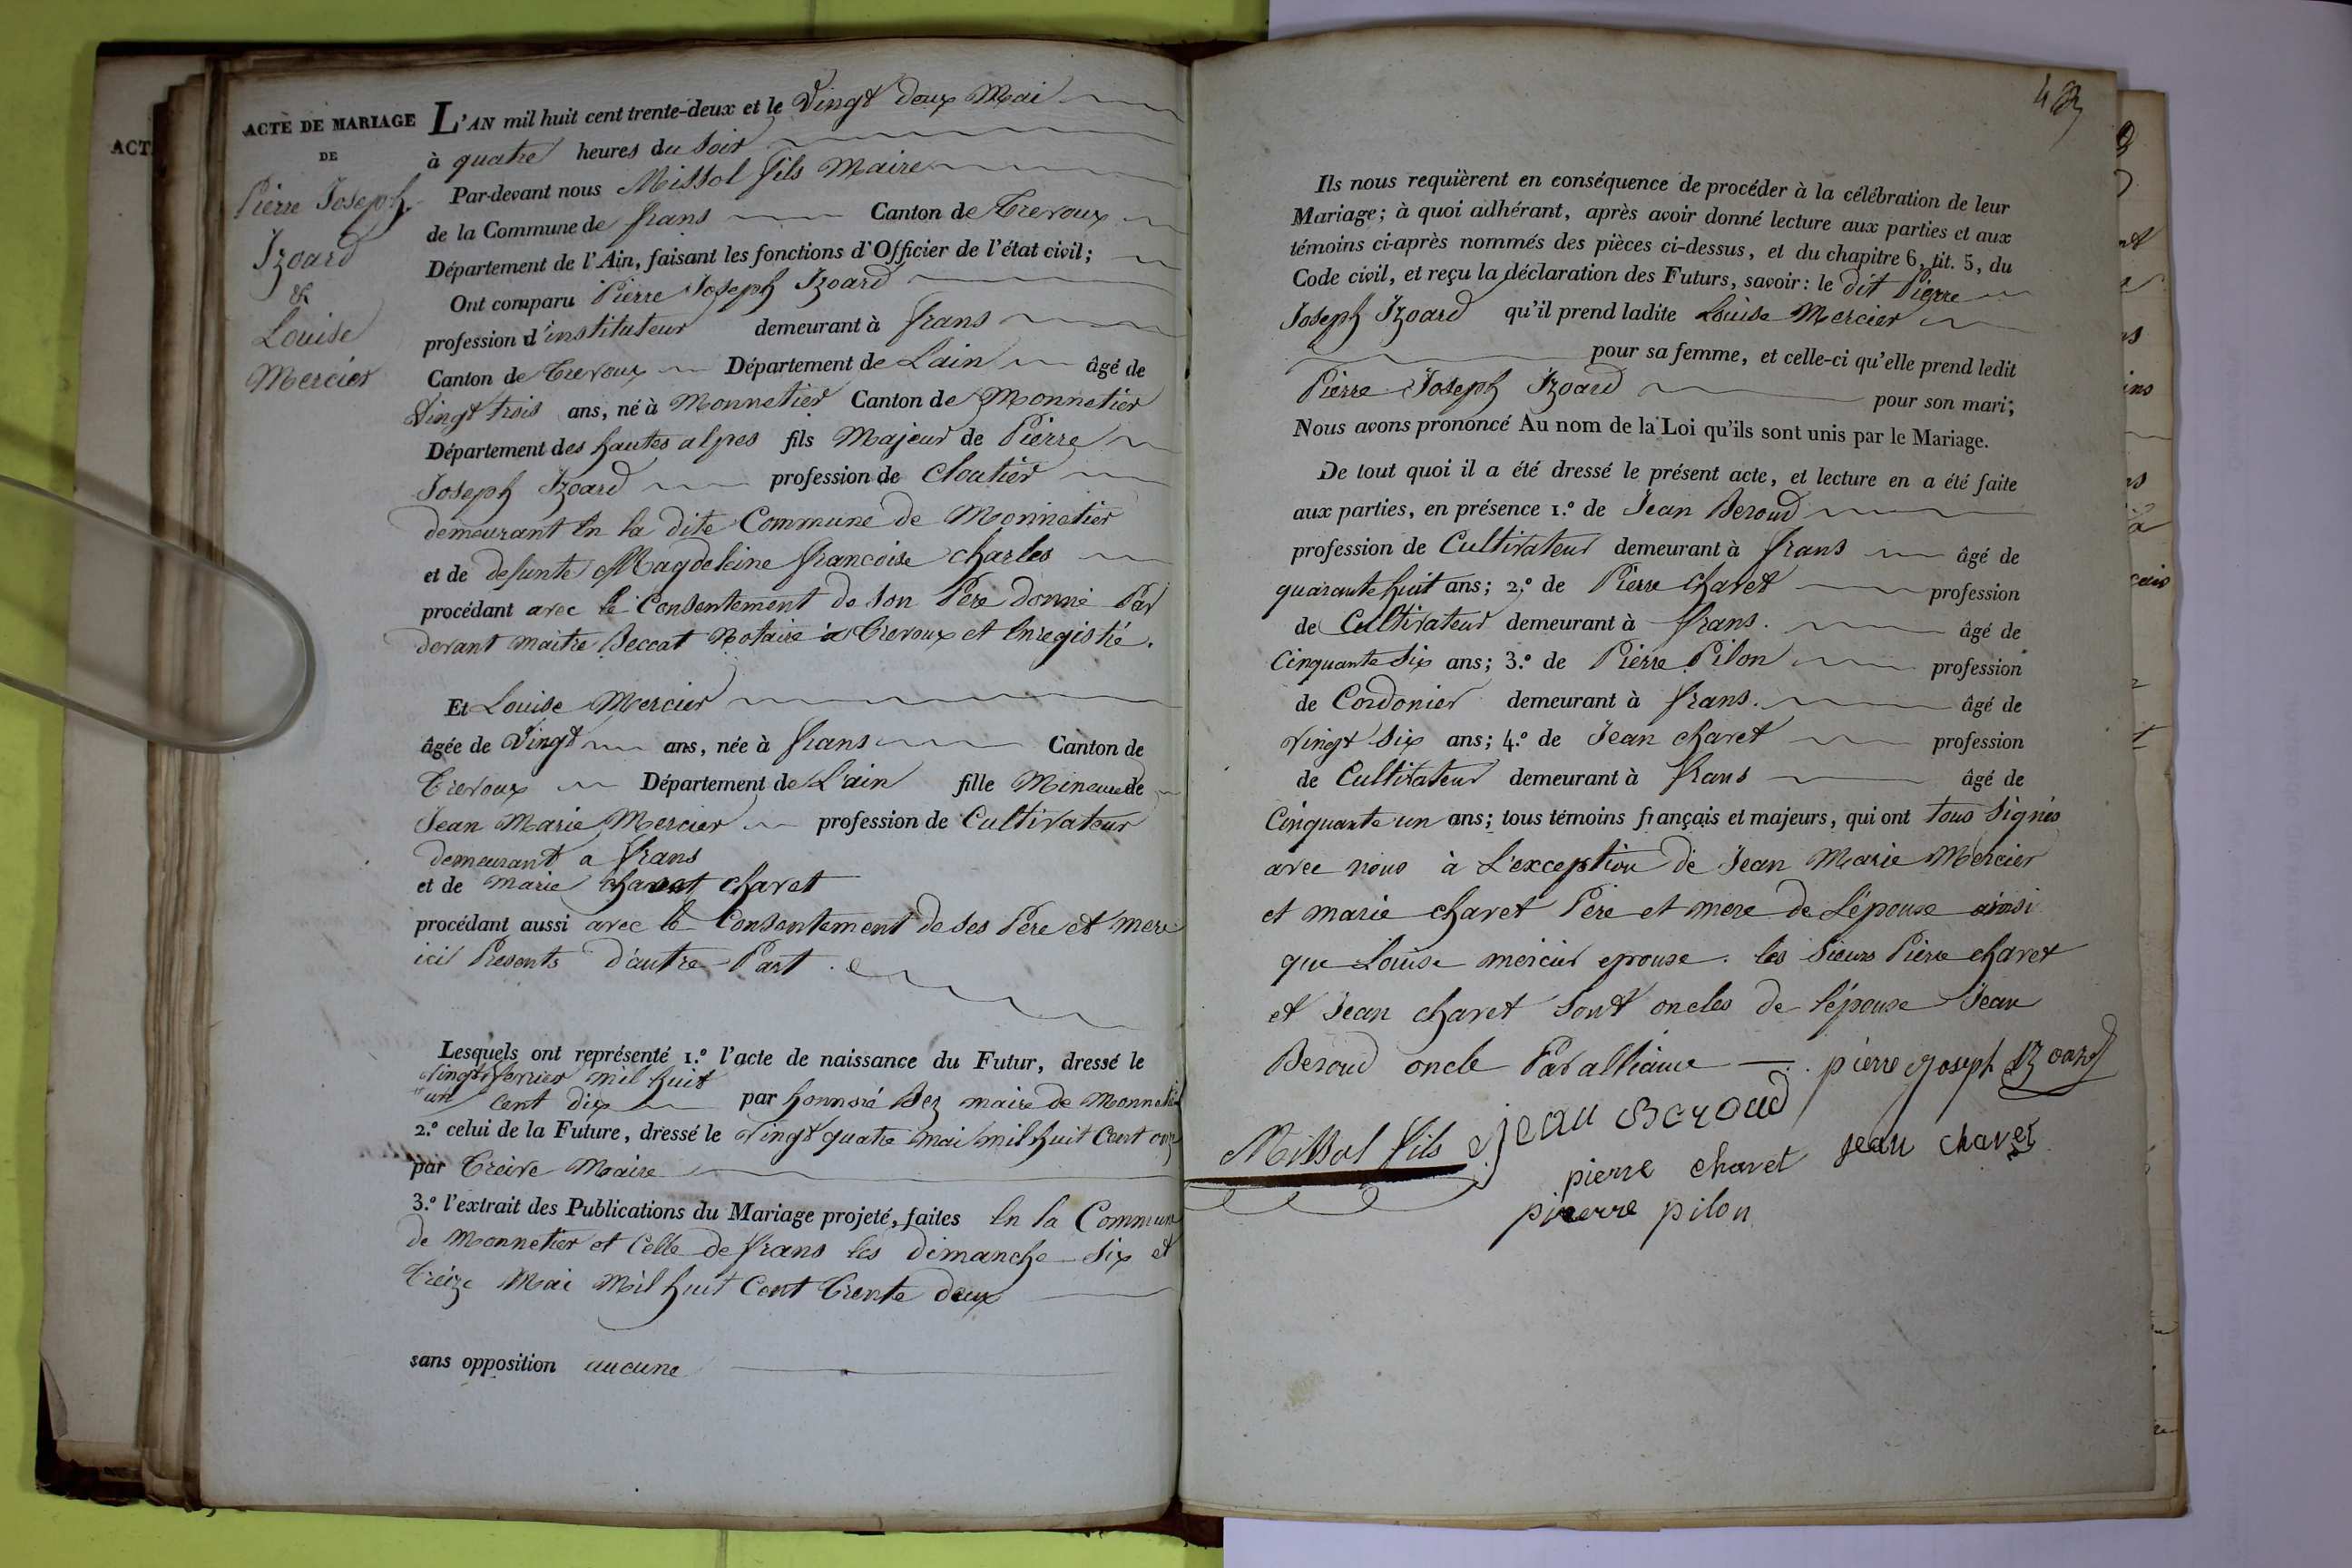 ACT
ACTE DE MARIAGE
DE
Pierre Joseph
Izoard
&
Louise
Mercier
L'AN mil huit cent trente-deux et le Vingt deux Mai
à quatre heures du Soir
Par-devant nous Missol fils Maire
de la Commune de frans Canton de Trevoux
Département de l'Ain, faisant les fonctions d'Officier de l'état civil;
Ont comparu Pierre Joseph Izoard
profession d'instituteur demeurant à frans
Canton de Trevoux Département de L'ain âgé de
Vingt trois ans, né à Monnetier Canton de Monnetier
Département des hautes alpes fils Majeur de Pierre
Joseph Izoard profession de Cloutier
demeurant En la dite Commune de Monnetier
et de defunte Magdeleine francoise charles
procédant avec le Consentement de son Pere donné Par
devant maitre Beccat Notaire à Trevoux et Enregistré.
Et Louise Mercier
âgée de Vingt ans, née à frans Canton de
Trevoux Département de L'ain fille Mineure de
Jean Marie Mercier profession de Cultivateur
demeurant a frans
et de marie charet
procédant aussi avec le Consentement de ses Père et mere
ici Presents d'autre Part.
Lesquels ont représenté 1.° l'acte de naissance du Futur, dressé le
vingt fevrier mil huit
un cent dix par honnoré Bez maire de Monnetier
2.° celui de la Future, dressé le Vingt quatre mai mil huit Cent onze
par Treive Maire
3.° l'extrait des Publications du Mariage projeté, faites En la Commune
de Monnetier et Celle de frans les dimanche Six et
Treize Mai Mil huit Cent Trente deux
sans opposition aucune
Ils nous requièrent en conséquence de procéder à la célébration de leur
Mariage; à quoi adhérant, après avoir donné lecture aux parties et aux
témoins ci-après nommés des pièces ci-dessus, et du chapitre 6, tit. 5, du
Code civil, et reçu la déclaration des Futurs, savoir: le dit Pierre
Joseph Izoard qu'il prend ladite Louise Mercier
pour sa femme, et celle-ci qu'elle prend ledit
Pierre Joseph Izoard pour son mari;
Nous avons prononcé Au nom de la Loi qu'ils sont unis par le Mariage.
De tout quoi il a été dressé le présent acte, et lecture en a été faite
aux parties, en présence 1.° de Jean Beroud
profession de Cultivateur demeurant à frans âgé de
quarante huit ans; 2.° de Pierre charet profession
de Cultivateur demeurant à frans. âgé de
Cinquante Six ans; 3.° de Pierre Pilon profession
de Cordonier demeurant à frans. âgé de
Vingt Six ans; 4.° de Jean charet profession
de Cultivateur demeurant à frans âgé de
Cinquante un ans; tous témoins français et majeurs, qui ont tous signés
avec nous à L'exception de Jean Marie Mercier
et marie charet Père et mere de L'épouse ainsi
que Louise mercier epouse. les Sieurs Pierre charet
et Jean charet Sont oncles de l'épouse Jean
Beroud oncle Par alliance pierre joseph Izoard
Missol fils jean Beroud
pierre charet jean charet
pieerre pilon